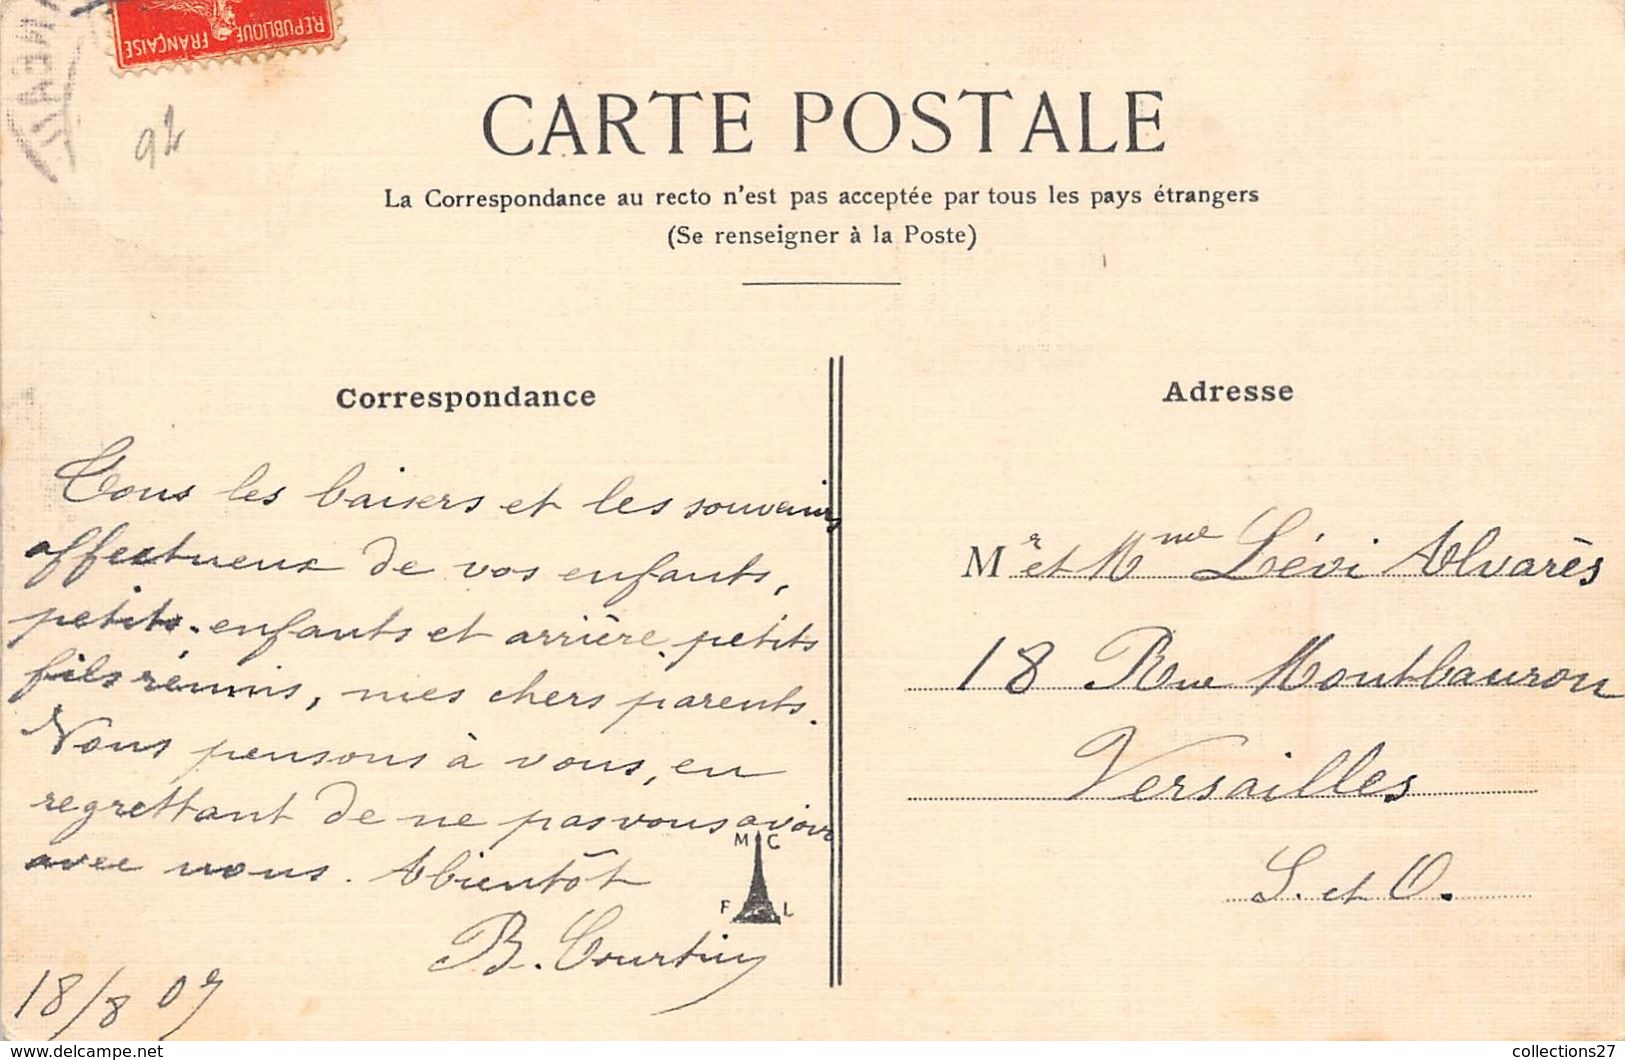 REPUBLIQUE FRANÇAISE
92
CARTE POSTALE
La Correspondance au recto n'est pas acceptée par tous les pays étrangers
(Se renseigner à la Poste)
Correspondance
Tous les baisers et les souvenirs
affectueux de vos enfants,
petits-enfants et arrière-petits
fils réunis, mes chers parents.
Nous pensons à vous, en
regrettant de ne pas vous avoir
avec nous. A bientôt
B. Courtin
18/8 07
M C
F L
Adresse
Mr et Mme Lévi Alvarès
18 Rue Montbauron
Versailles
S. et O.
collections27